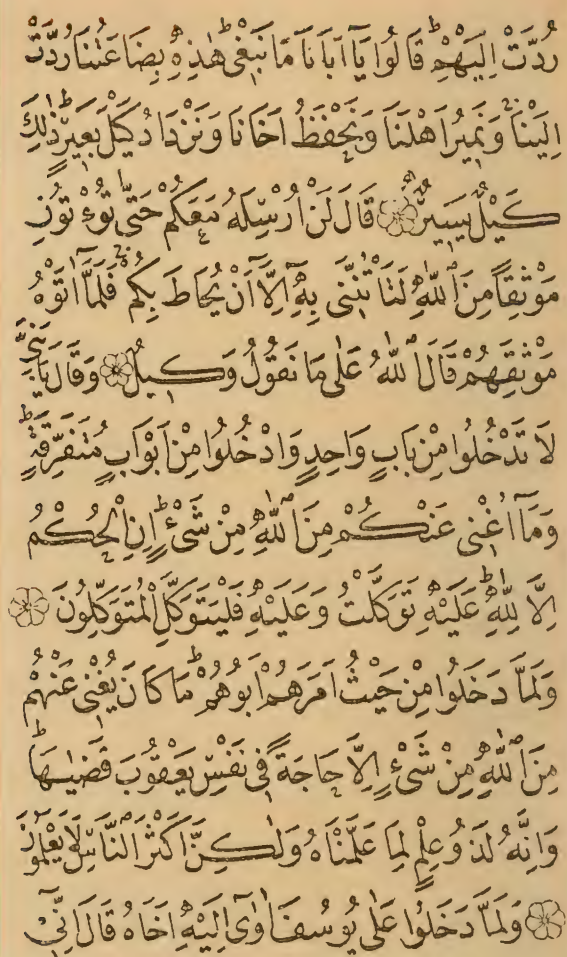 رُدَّتْ اِلَيْهِمْۜ قَالُوا يَٓا اَبَانَا مَا نَبْغٖيۜ هٰذِهٖ بِضَاعَتُنَا رُدَّتْ
اِلَيْنَاۚ وَنَمٖيرُ اَهْلَنَا وَنَحْفَظُ اَخَانَا وَنَزْدَادُ كَيْلَ بَعٖيرٍۜ ذٰلِكَ
كَيْلٌ يَسٖيرٌ ۝ قَالَ لَنْ اُرْسِلَهُ مَعَكُمْ حَتّٰى تُؤْتُونِ
مَوْثِقًا مِنَ اللّٰهِ لَتَأْتُنَّنٖي بِهٖٓ اِلَّٓا اَنْ يُحَاطَ بِكُمْۚ فَلَمَّٓا اٰتَوْهُ
مَوْثِقَهُمْ قَالَ اللّٰهُ عَلٰى مَا نَقُولُ وَكٖيلٌ ۝ وَقَالَ يَا بَنِيَّ
لَا تَدْخُلُوا مِنْ بَابٍ وَاحِدٍ وَادْخُلُوا مِنْ اَبْوَابٍ مُتَفَرِّقَةٍۜ
وَمَٓا اُغْنٖي عَنْكُمْ مِنَ اللّٰهِ مِنْ شَيْءٍۜ اِنِ الْحُكْمُ
اِلَّا لِلّٰهِۜ عَلَيْهِ تَوَكَّلْتُ وَعَلَيْهِ فَلْيَتَوَكَّلِ الْمُتَوَكِّلُونَ ۝
وَلَمَّا دَخَلُوا مِنْ حَيْثُ اَمَرَهُمْ اَبُوهُمْۜ مَا كَانَ يُغْنٖي عَنْهُمْ
مِنَ اللّٰهِ مِنْ شَيْءٍ اِلَّا حَاجَةً فٖي نَفْسِ يَعْقُوبَ قَضٰيهَاۜ
وَاِنَّهُ لَذُو عِلْمٍ لِمَا عَلَّمْنَاهُ وَلٰكِنَّ اَكْثَرَ النَّاسِ لَا يَعْلَمُونَ
۝ وَلَمَّا دَخَلُوا عَلٰى يُوسُفَ اٰوٰٓى اِلَيْهِ اَخَاهُ قَالَ اِنّٖٓي